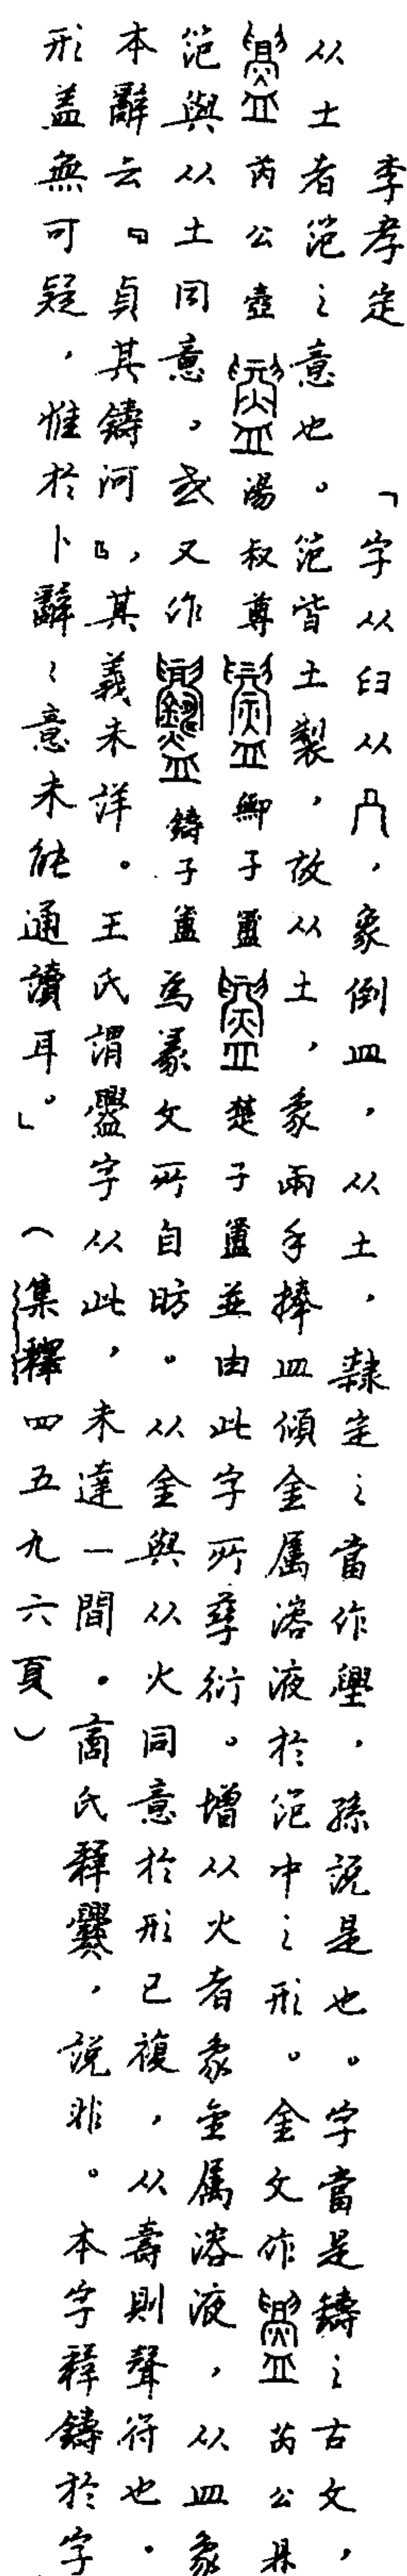 李孝定 「字从臼从，象倒皿，从土，隸定之當作，孫説是也。字當是鑄之古文，
从土者笵之意也。笵皆土製，故从土，象兩手捧皿傾金屬溶液於笵中之形。金文作 芮公鼎
芮公壺 湯叔尊 子簠 楚子簠並由此字所孳衍。增从火者象金屬溶液，从皿象
笵與从土同意，或又作 鑄子簠為篆文所自昉。从金與从火同意於形已複，从壽則聲符也．
本辭云『貞其鑄河』，其義未詳。王氏謂釁字从此，未達一間．商氏釋爨，説非。本字釋鑄於字
形盖無可疑，惟於卜辭之意未能通讀耳。」（集釋四五九六頁）